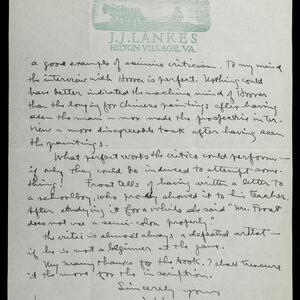 J.J. LANKES
HILTON VILLAGE, VA.
a good example of asinine criticism. To my mind
the interview with Hoover is perfect. Nothing could
have better indicated the machine mind of Hoover
than the longing for Chinese paintings after having
seen the man – nor made the prospective inter-
view a more disagreeable task after having seen
the paintings.
What perfect works the critics could perform –
if only they could be induced to attempt some-
thing! Frost tells of having written a letter to
a schoolboy, who proudly showed it to his teacher.
After studying it for a while she said "Mr. Frost
does not use a semi-colon properly."
The critic is almost always a defeated artist –
if he is not a beginner at the game.
My many thanks for the book. I shall treasure
it the more for the inscription.
Sincerely yours